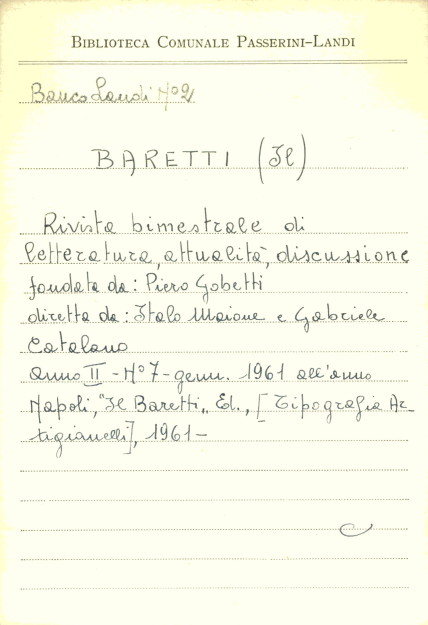 BIBLIOTECA COMUNALE PASSERINI-LANDI
Banco Landi No 2
BARETTI (Il)
Rivista bimestrale di
letteratura, attualità, discussione
fondata da: Piero Gobetti
diretta da: Italo Maione e Gabriele
Catalano
anno II - No 7 - genn. 1961 all'anno
Napoli, "Il Baretti", Ed., [Tipografia Ar-
tigianelli], 1961 -